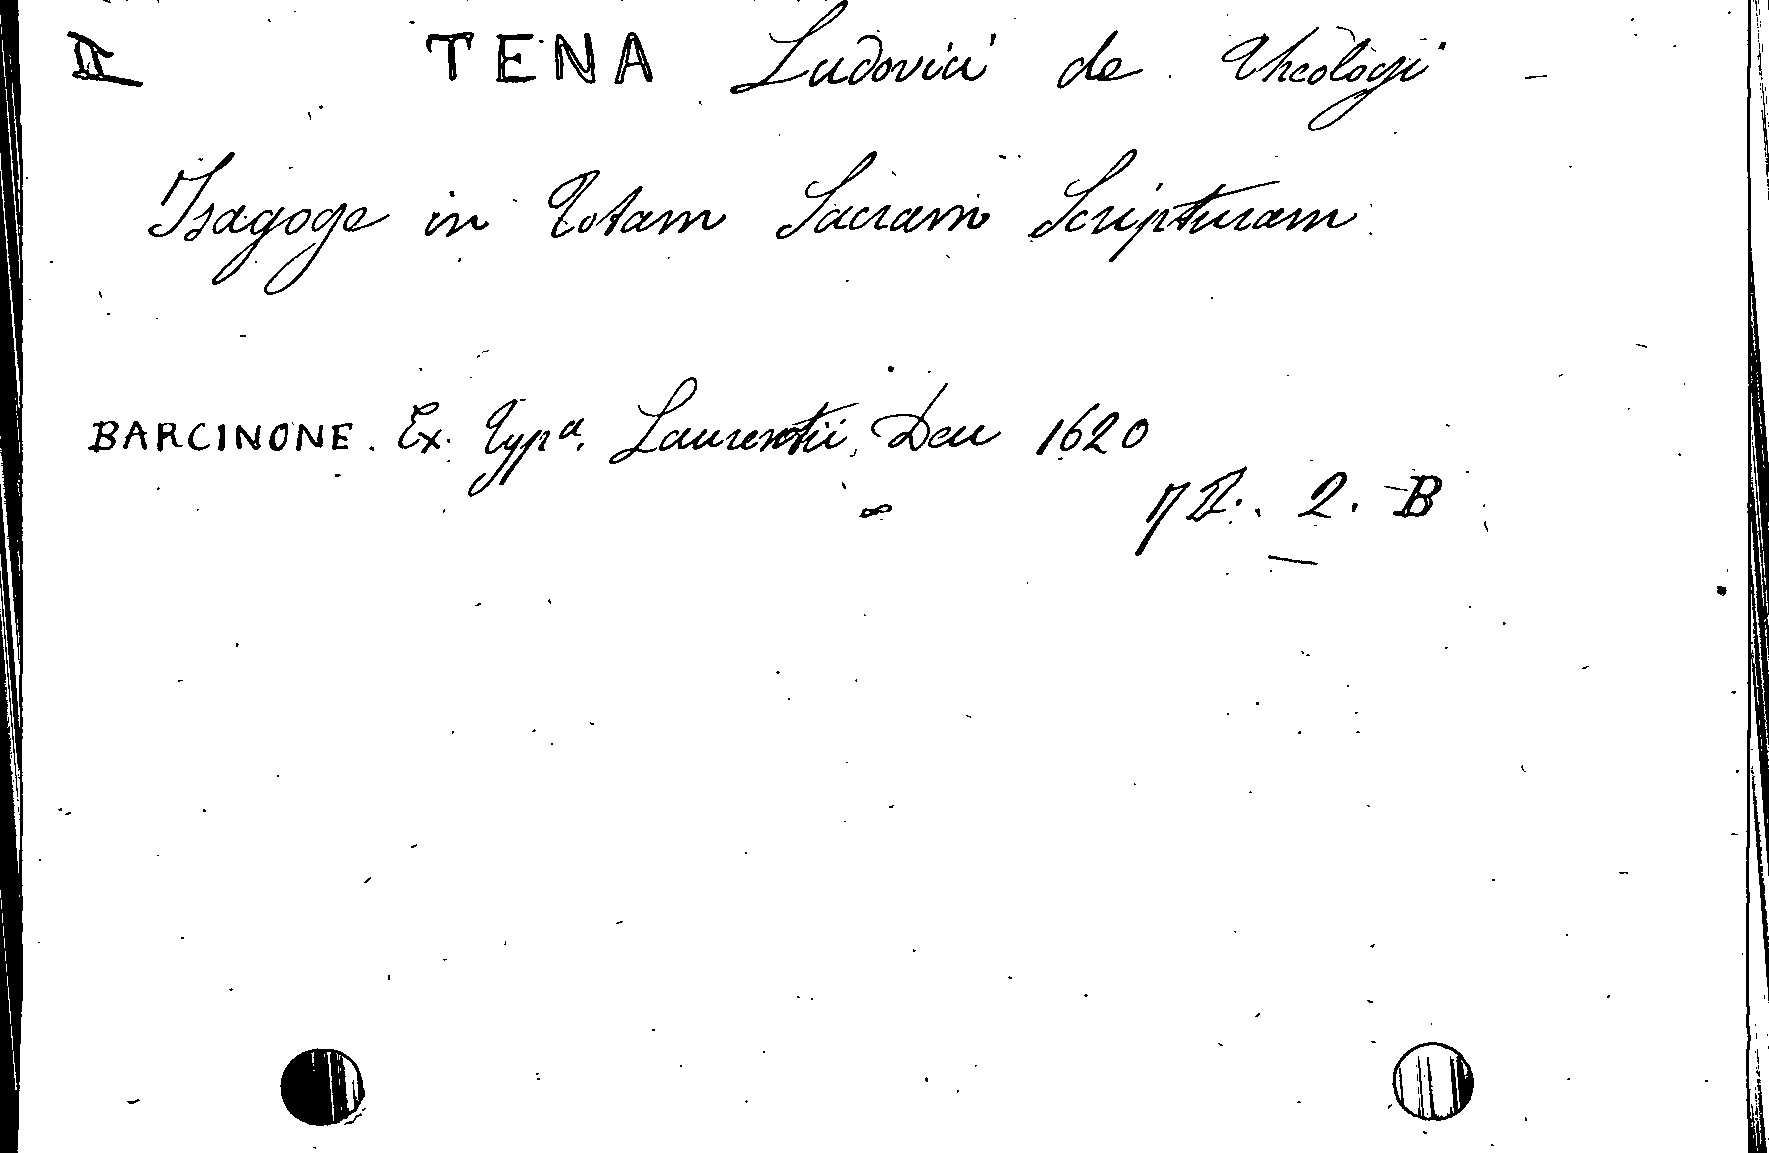 II TENA Ludovici de Theologi -
Isagoge in Totam Sacram Scripturam
BARCINONE. Ex. Typª. Laurentii Deu 1620
2. B